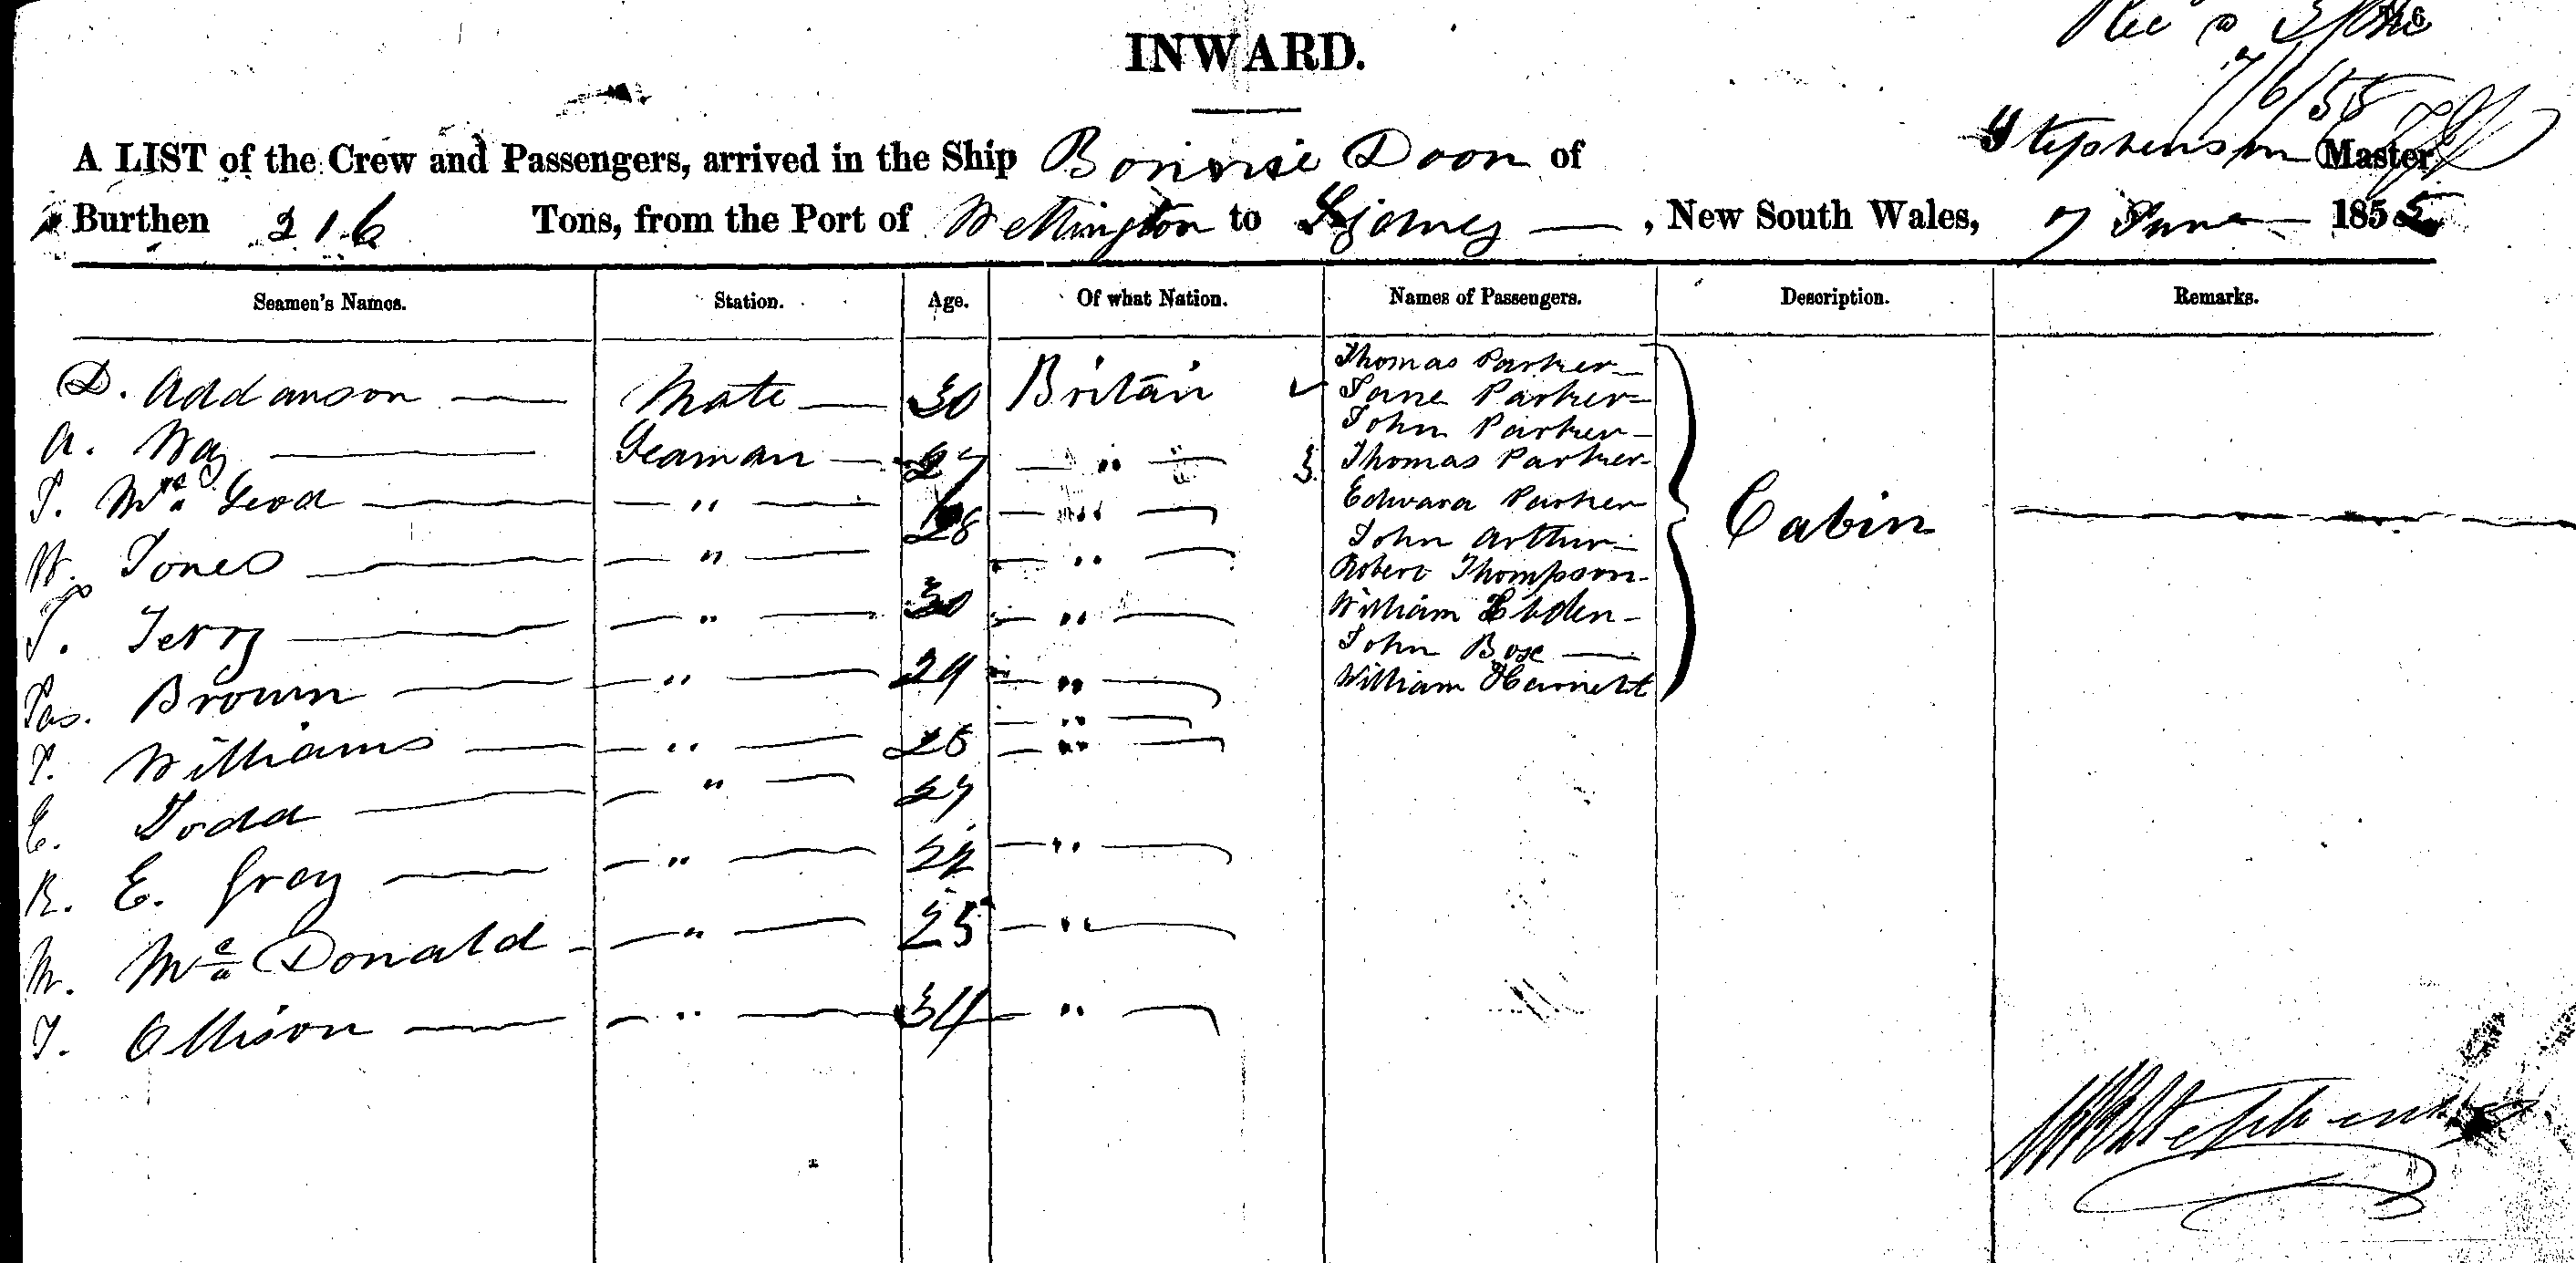 INWARD.
7/6/55
A LIST of the Crew and Passengers, arrived in the Ship Bonnie Doon of Stephenson Master
Burthen 216 Tons, from the Port of Wellington to Sydney — , New South Wales, 7 June — 1855
Seamen's Names. Station. Age. Of what Nation. Names of Passengers. Description. Remarks.
Thomas Parker
D. Addanson — Mate — 30 Britain Jane Parker
John Parker
A. Way — Seaman — 27 — " — Thomas Parker
J. Mc Leod — " — 28 — " — Edward Parker
Cabin
John Arthur
W. Jones — " — — " — Robert Thompson
William Ebden
J. Terry — " — 30 — " — John Bose —
Jas. Brown — " — 29 — " — William Harnett
— " —
J. Williams — " — 26 — " —
E. Todd — " — 27
R. E. Gray — " — 24 — " —
M. Mc Donald — " — 25 — " —
T. Ollison — " — 34 — " —